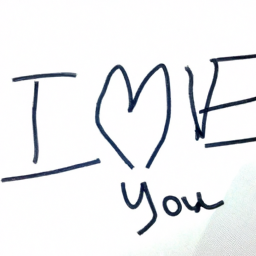 I ♡VE
You